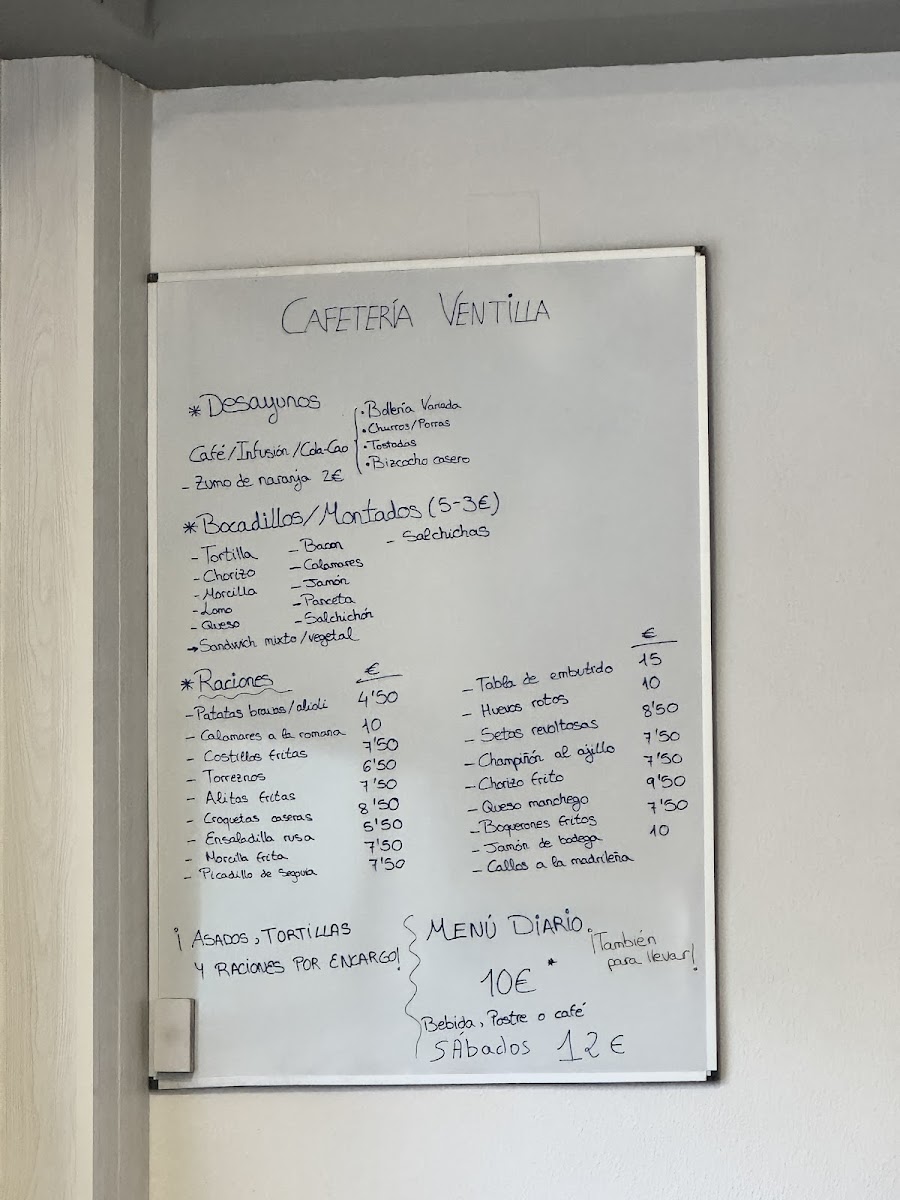 CAFETERÍA VENTILLA
* Desayunos
Café/Infusión/Cola-Cao
- Zumo de naranja 2€
· Bollería Variada
· Churros/Porras
· Tostadas
· Bizcocho casero
* Bocadillos/Montados (5-3€)
- Tortilla
- Chorizo
- Morcilla
- Lomo
- Queso
- Bacon
- Calamares
- Jamón
- Panceta
- Salchichón
- Salchichas
→ Sandwich mixto/vegetal
* Raciones €
- Patatas bravas/alioli 4'50
- Calamares a la romana 10
- Costillas fritas 7'50
- Torreznos 6'50
- Alitas fritas 7'50
- Croquetas caseras 8'50
- Ensaladilla rusa 5'50
- Morcilla frita 7'50
- Picadillo de Segovia 7'50
€
- Tabla de embutido 15
- Huevos rotos 10
- Setas revoltosas 8'50
- Champiñón al ajillo 7'50
- Chorizo frito 7'50
- Queso manchego 9'50
- Boquerones fritos 7'50
- Jamón de bodega 10
- Callos a la madrileña
¡ASADOS, TORTILLAS
Y RACIONES POR ENCARGO!
MENÚ DIARIO.
10€ *
¡También
para llevar!
Bebida, Postre o café
SÁbados 12€